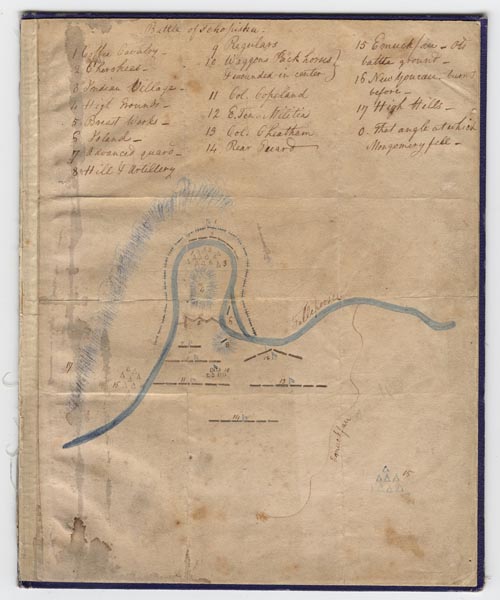 Battle of Tohopiska.
1 Coffee Cavalry –
2 Cherokees –
3 Indian Village –
4 High Grounds –
5 Breast Works –
6 Island –
7 Advanced guard –
8 Hill & Artillery
9 Regulars
10 Waggons Pack horses
& wounded in center
11 Col. Copeland
12 E. Tenn. Militia
13 Col. Cheatham
14 Rear Guard
15 Emuckfau – Old
battle ground –
16 New youcau. burnt
before –
17 High Hills –
0. that angle at which
Montgomery fell –
Tallapoosa
Emuckfau
17
16
11
13
14
15